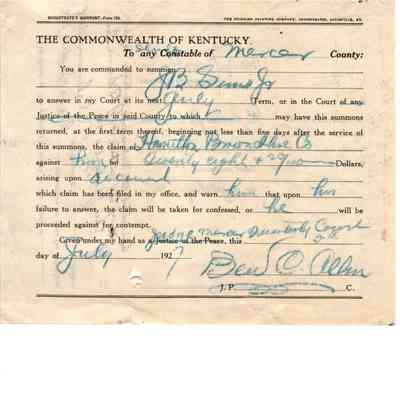 MAGISTRATE'S WARRANT—Form
THE COMMONWEALTH OF KENTUCKY
To any Constable of Mercer County:
You are commanded to summon
J B Sims Jr
to answer in my Court at its next July Term, or in the Court of any
Justice of the Peace in said County to which may have this summons
returned, at the first term thereof, beginning not less than five days after the service of
this summons, the claim of Hamilton Brown Shoe Co
against him for Seventy eight & Dollars,
arising upon account
which claim has been filed in my office, and warn him that upon his
failure to answer, the claim will be taken for confessed, or he will be
proceeded against for contempt.
Given under my hand as a Justice of the Peace, this
Judge Mercer Quarterly Court
day of July 1927
Ben C. Allin
J. P. C.